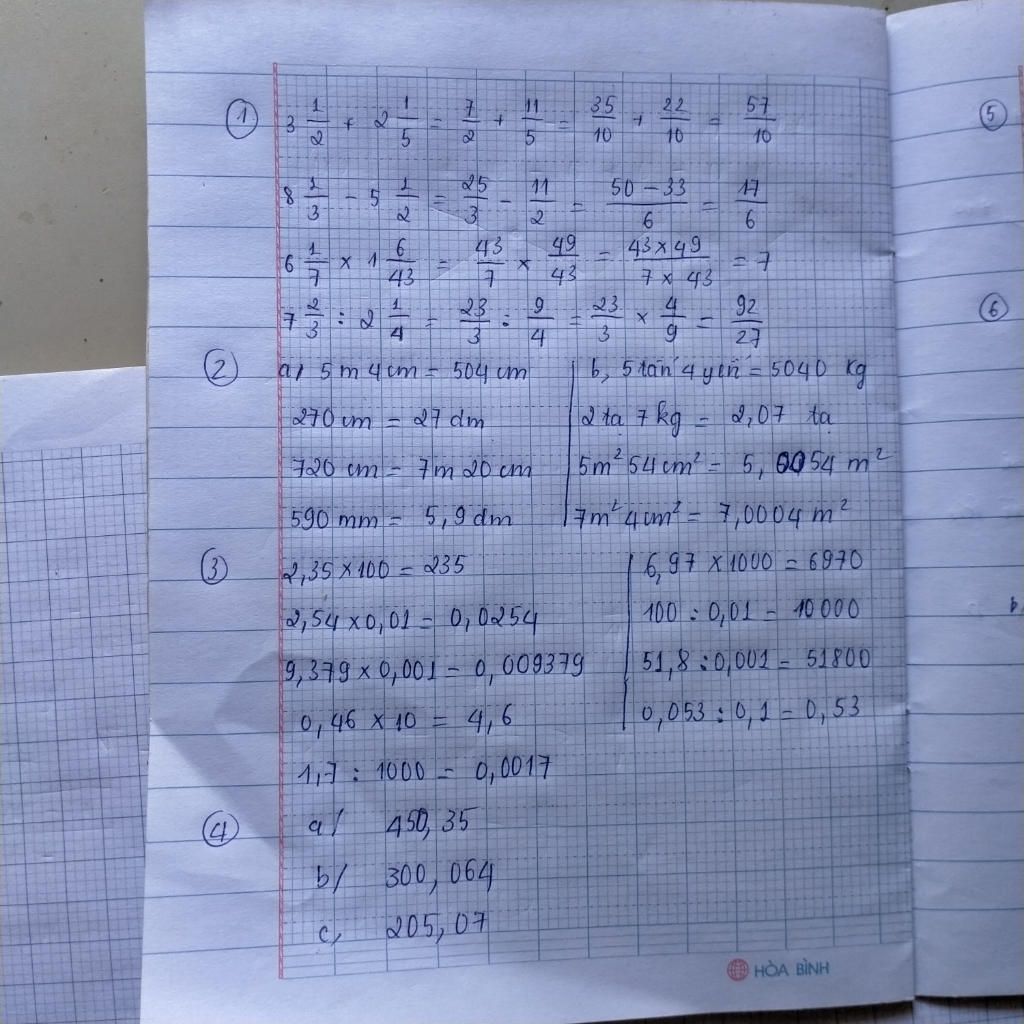 ① 3 1/2 + 2 1/5 = 7/2 + 11/5 = 35/10 + 22/10 = 57/10
8 1/3 - 5 1/2 = 25/3 - 11/2 = (50 - 33)/6 = 17/6
6 1/7 × 1 6/43 = 43/7 × 49/43 = (43 × 49)/(7 × 43) = 7
7 2/3 : 2 1/4 = 23/3 : 9/4 = 23/3 × 4/9 = 92/27
② a/ 5 m 4 cm = 504 cm
270 cm = 27 dm
720 cm = 7 m 20 cm
590 mm = 5,9 dm
b, 5 tấn 4 yến = 5040 kg
2 tạ 7 kg = 2,07 tạ
5m² 54cm² = 5,0054 m²
7m² 4cm² = 7,0004 m²
③ 2,35 × 100 = 235
2,54 × 0,01 = 0,0254
9,379 × 0,001 = 0,009379
0,46 × 10 = 4,6
1,7 : 1000 = 0,0017
6,97 × 1000 = 6970
100 : 0,01 = 10000
51,8 : 0,001 = 51800
0,053 : 0,1 = 0,53
④ a/ 450,35
b/ 300,064
c, 205,07
HÒA BÌNH
⑤
⑥
b,